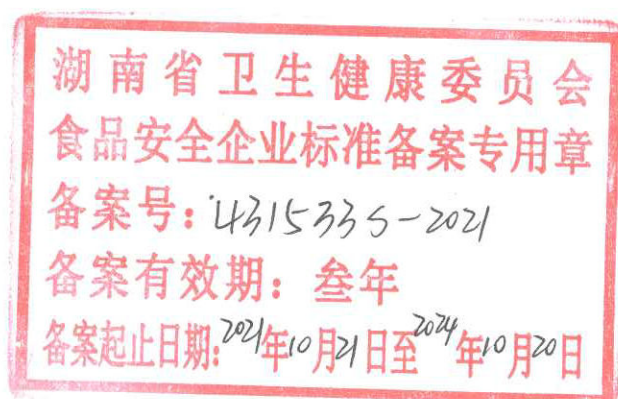 湖南省卫生健康委员会
食品安全企业标准备案专用章
备案号：431533S-2021
备案有效期：叁年
备案起止日期：2021年10月21日至2024年10月20日